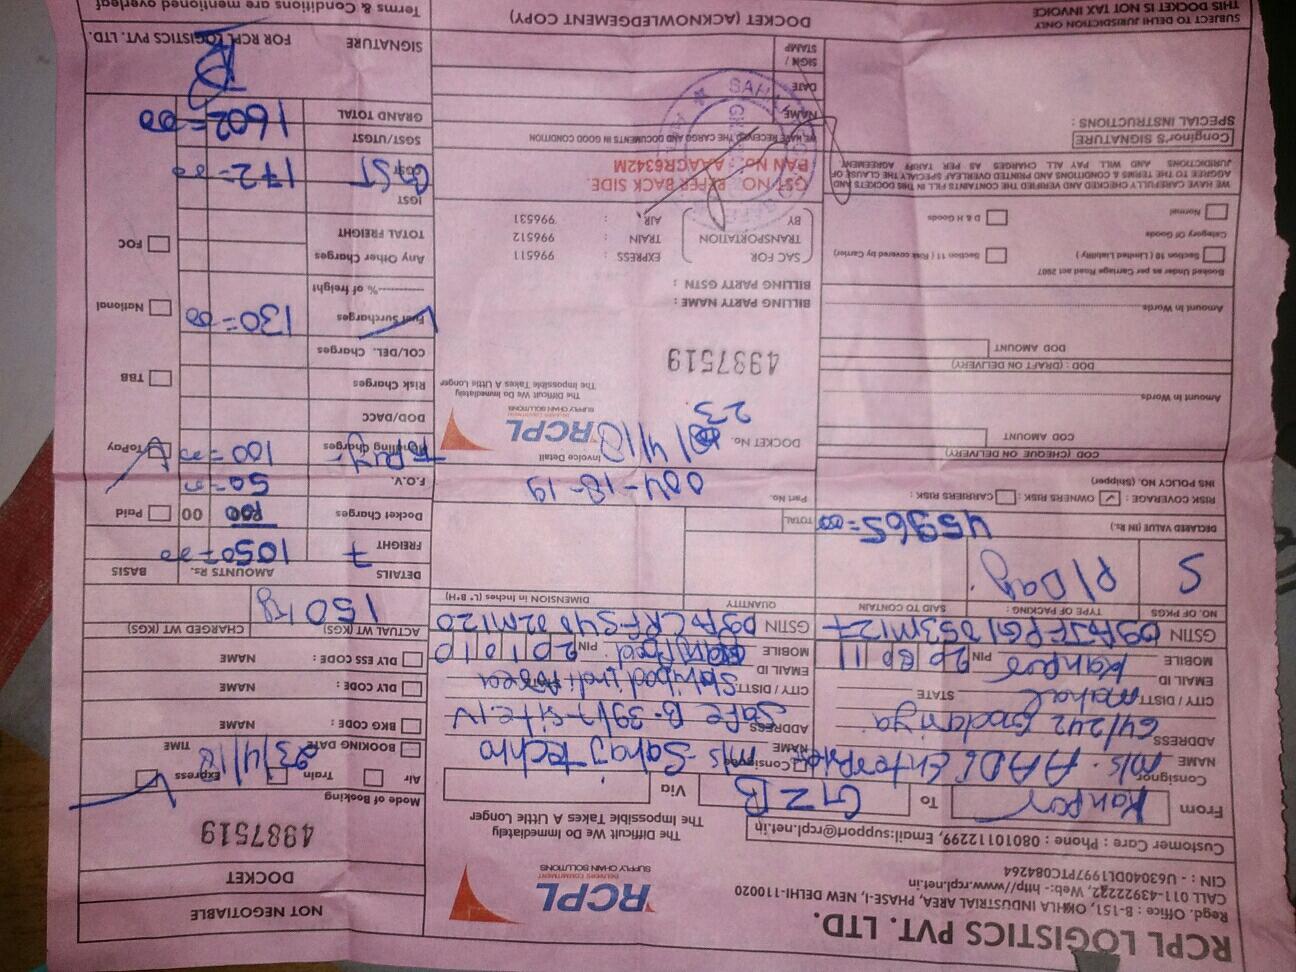 RCPL LOGISTICS PVT. LTD.
Regd. Office : B-151, OKHLA INDUSTRIAL AREA, PHASE-I, NEW DELHI-110020
CALL 011-43922222, Web:- http//www.rcpl.net.in
CIN : - U63040DL1997PTC084264
Customer Care : Phone : 08010112299, Email:support@rcpl.net.in
RCPL
DELIVERS COMMITMENT
SUPPLY CHAIN SOLUTIONS
The Difficult We Do Immediately
The Impossible Takes A Little Longer
NOT NEGOTIABLE
DOCKET
4987519
From Kanpur To GZB Via
Mode of Booking
Air Train Express
Consignor
NAME M/s. AADI Enterprises
ADDRESS 64/242 Gadariya
mohal
CITY / DISTT. STATE
EMAIL ID Kanpur
MOBILE PIN
GSTIN
Consignee
NAME M/s Sahaj Techno
ADDRESS Safe B-39/7-Site-IV
CITY / DISTT. Sahibad Indl Area
EMAIL ID
MOBILE PIN 201010
GSTIN
BOOKING DATE 23/4/18 TIME
BKG CODE : NAME
DLY CODE : NAME
DLY ESS CODE : NAME
ACTUAL WT (KGS) CHARGED WT (KGS)
150 kg
NO. OF PKGS. TYPE OF PACKING : SAID TO CONTAIN QUANTITY DIMENSION in Inches (L* B*H)
5
DECLARED VALUE (IN Rs.) 45965=00 TOTAL
RISK COVERAGE : OWNERS RISK : CARRIERS RISK :
INS POLICY NO. (Shipper)
COD (CHEQUE ON DELIVERY)
COD AMOUNT
Amount in Words
DOD : (DRAFT ON DELIVERY)
DOD AMOUNT
Amount in Words
Booked Under as per Carriage Road act 2007
Section 10 ( Limited Liability ) Section 11 ( Risk covered by Carrier)
Category Of Goods
Normal D & H Goods
WE HAVE CAREFULLY CHECKED AND VERIFIED THE CONTAINTS FILL IN THIS DOCKETS AND
AGREE TO THE TERMS & CONDITIONS AND PRINTED OVERLEAF SPECIALY THE CLAUSE OF
JURISDICTIONS AND WILL PAY ALL CHARGES AS PER TARIFF AGREEMENT
Conginor'S SIGNATURE
SPECIAL INSTRUCTIONS :
SUBJECT TO DELHI JURISDICTION ONLY
THIS DOCKET IS NOT TAX INVOICE
Part No.
004-18-19
Invoice Detail
DOCKET No.
23
4/18
RCPL
DELIVERS COMMITMENT
SUPPLY CHAIN SOLUTIONS
The Difficult We Do Immediately
The Impossible Takes A Little Longer
4987519
BILLING PARTY NAME :
BILLING PARTY GSTN :
SAC FOR TRANSPORTATION BY
EXPRESS : 996511
TRAIN : 996512
AIR : 996531
GST NO. : REPER BACK SIDE.
PAN No. : AAACR6342M
WE HAVE RECEIVED THE CARGO AND DOCUMENTS IN GOOD CONDITION
NAME
DATE
SIGN / STAMP
DOCKET (ACKNOWLEDGEMENT COPY)
DETAILS AMOUNTS Rs. BASIS
FREIGHT 1050=00
Docket Charges 100 00 Paid
F.O.V. 50=00
Handling Charges 100=00 ToPay
DOD/DACC
Risk Charges TBB
COL/DEL. Charges
Fuel Surcharges 130=00 National
---------% of freight
Any Other Charges FOC
TOTAL FREIGHT
IGST
CGST GST 172=00
SGST/UTGST
GRAND TOTAL 1602=00
SIGNATURE FOR RCPL LOGISTICS PVT. LTD.
Terms & Conditions are mentioned overleaf